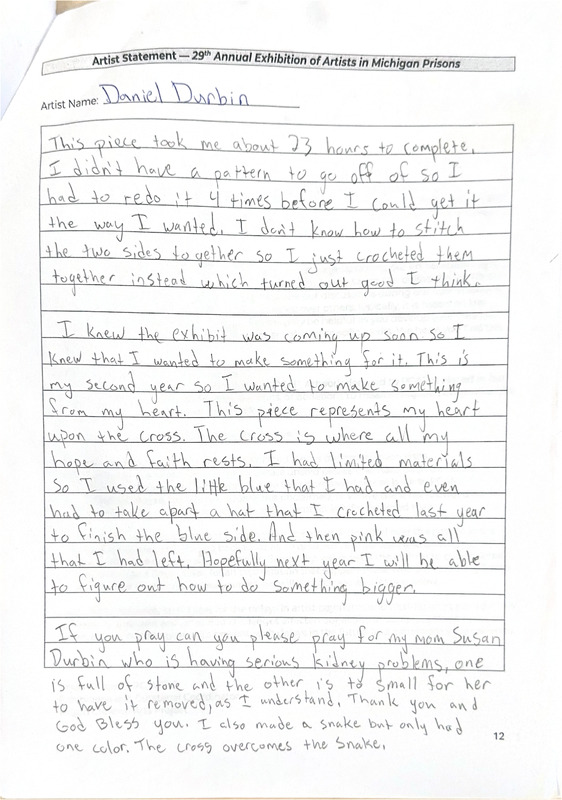 Artist Statement — 29th Annual Exhibition of Artists in Michigan Prisons
Artist Name: Daniel Durbin
This piece took me about 23 hours to complete.
I didn't have a pattern to go off of so I
had to redo it 4 times before I could get it
the way I wanted. I don't know how to stitch
the two sides together so I just crocheted them
together instead which turned out good I think.
I knew the exhibit was coming up soon so I
knew that I wanted to make something for it. This is
my second year so I wanted to make something
from my heart. This piece represents my heart
upon the cross. The cross is where all my
hope and faith rests. I had limited materials
so I used the little blue that I had and even
had to take apart a hat that I crocheted last year
to finish the blue side. And then pink was all
that I had left. Hopefully next year I will be able
to figure out how to do something bigger.
If you pray can you please pray for my mom Susan
Durbin who is having serious kidney problems, one
is full of stone and the other is to small for her
to have it removed, as I understand. Thank you and
God Bless you. I also made a snake but only had
one color. The cross overcomes the snake.
12